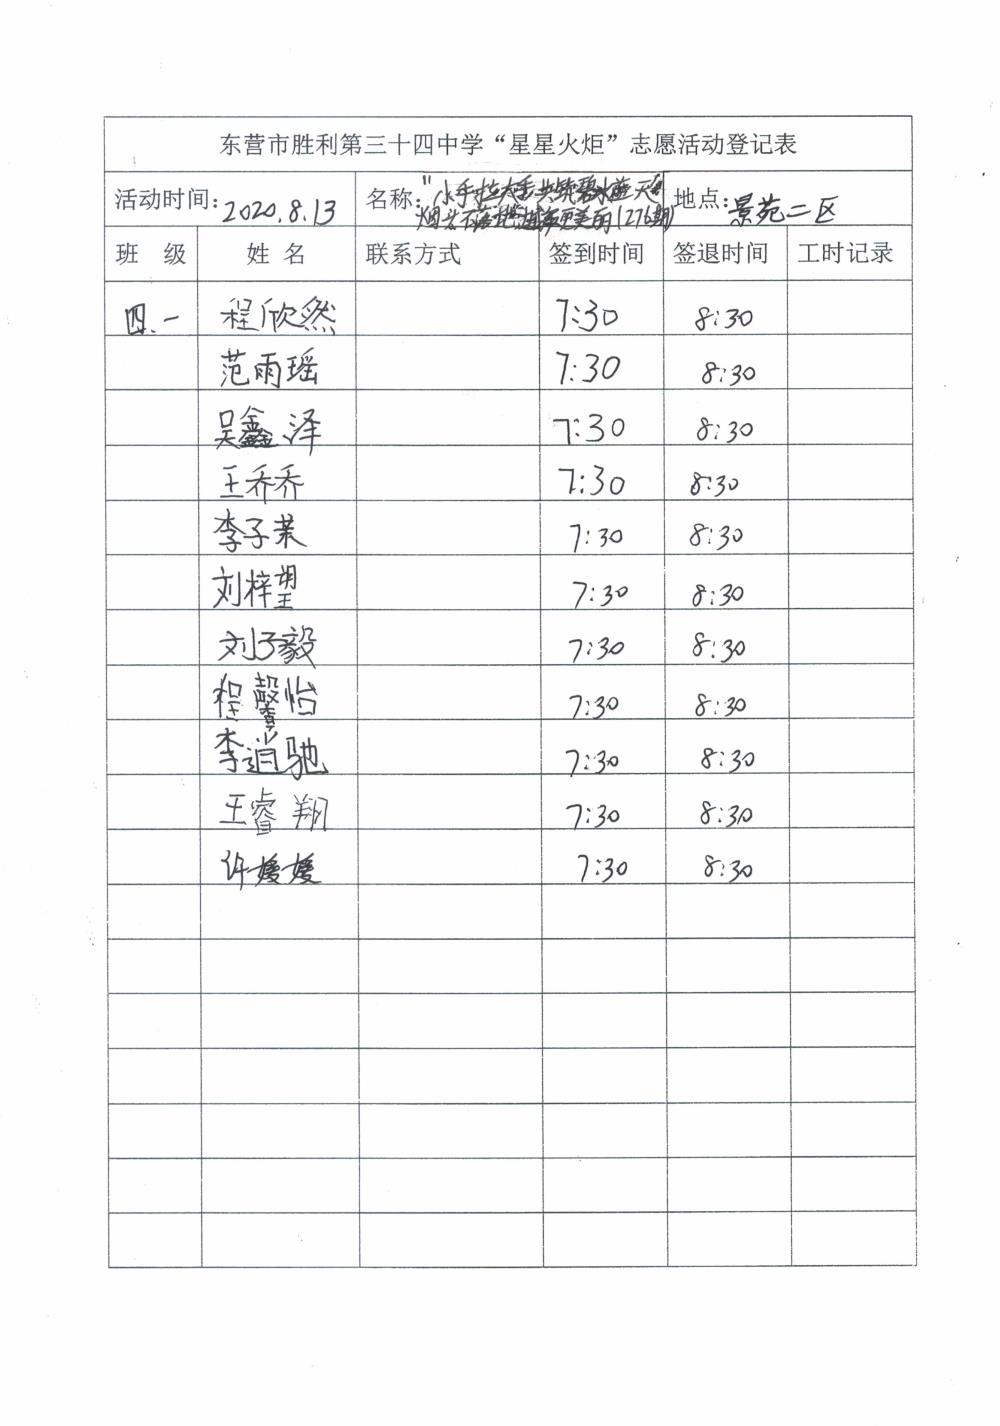 东营市胜利第三十四中学“星星火炬”志愿活动登记表
活动时间:2020.8.13 名称:"小手拉大手共筑碧水蓝天" 地点:景苑二区
烟头不落地 更美丽(276期)
班 级 姓 名 联系方式 签到时间 签退时间 工时记录
四.一 程欣然 7:30 8:30
范雨瑶 7:30 8:30
吴鑫泽 7:30 8:30
王乔乔 7:30 8:30
李子茉 7:30 8:30
刘梓塱 7:30 8:30
刘子毅 7:30 8:30
程馨怡 7:30 8:30
李逍驰 7:30 8:30
王睿翔 7:30 8:30
许媛媛 7:30 8:30